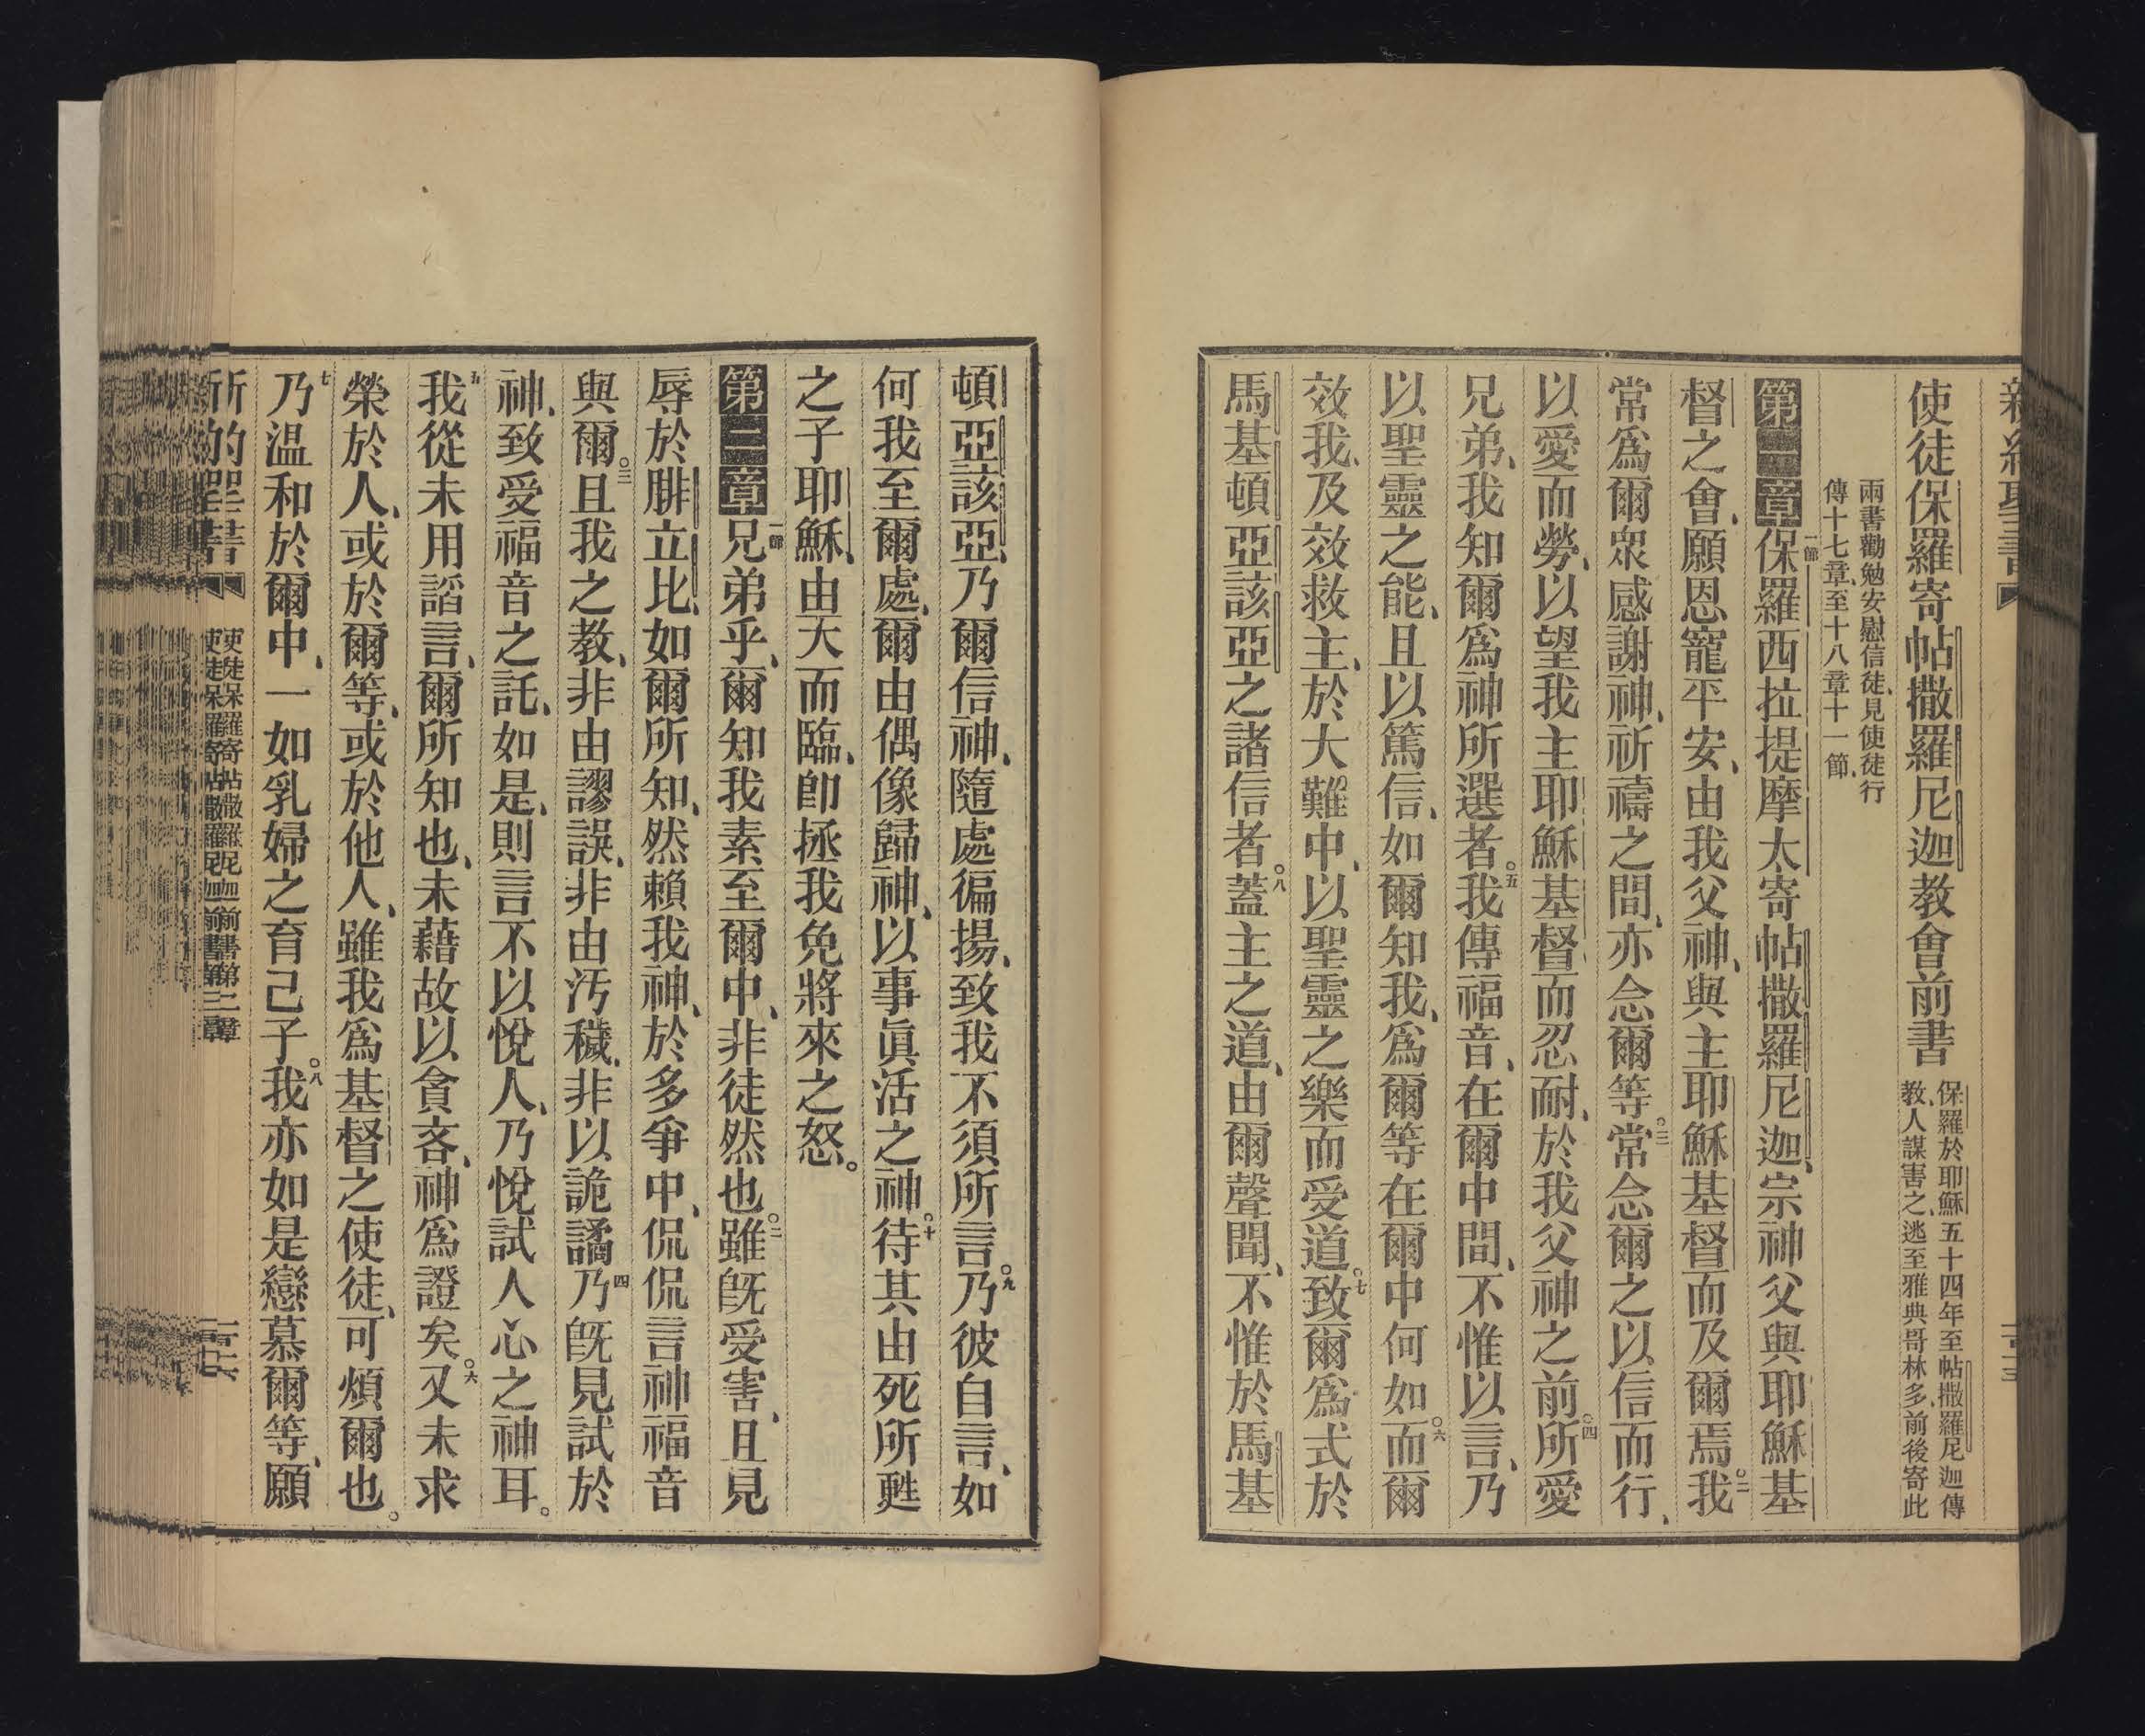 使徒保羅寄帖撒羅尼迦教會前書 保羅於耶穌五十四年至帖撒羅尼迦傳
教人謀害之、逃至雅典哥林多、前後寄此
兩書勸勉安慰信徒、見使徒行
傳十七章、至十八章十一節、
第一章 一節保羅西拉提摩太寄帖撒羅尼迦、宗神父與耶穌基
督之會、願恩寵平安、由我父神、與主耶穌基督而及爾焉。二我
常爲爾眾感謝神、祈禱之間、亦念爾等。三常念爾之以信而行、
以愛而勞、以望我主耶穌基督而忍耐、於我父神之前。四所愛
兄弟、我知爾爲神所選者。五我傳福音、在爾中間、不惟以言、乃
以聖靈之能、且以篤信、如爾知我、爲爾等在爾中何如。六而爾
效我、及效救主、於大難中、以聖靈之樂而受道。七致爾爲式於
馬基頓亞該亞之諸信者。八蓋主之道、由爾聲聞、不惟於馬基
頓亞該亞、乃爾信神、隨處徧揚、致我不須所言。九乃彼自言、如
何我至爾處、爾由偶像歸神、以事眞活之神。十待其由死所甦
之子耶穌、由天而臨、卽拯我免將來之怒。
第二章 一節兄弟乎、爾知我素至爾中、非徒然也。二雖旣受害、且見
辱於腓立比、如爾所知、然賴我神、於多爭中、侃侃言神福音
與爾。三且我之敎、非由謬誤、非由汚穢、非以詭譎、四乃旣見試於
神、致受福音之託、如是、則言不以悅人、乃悅試人心之神耳。
五我從未用諂言、爾所知也、未藉故以貪吝、神爲證矣。六又未求
榮於人、或於爾等、或於他人、雖我爲基督之使徒、可煩爾也。
七乃温和於爾中、一如乳婦之育己子。八我亦如是戀慕爾等、願